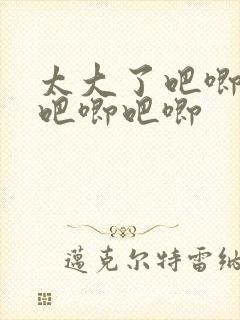 太大了吧唧
吧唧吧唧
邁克尔特雷纳